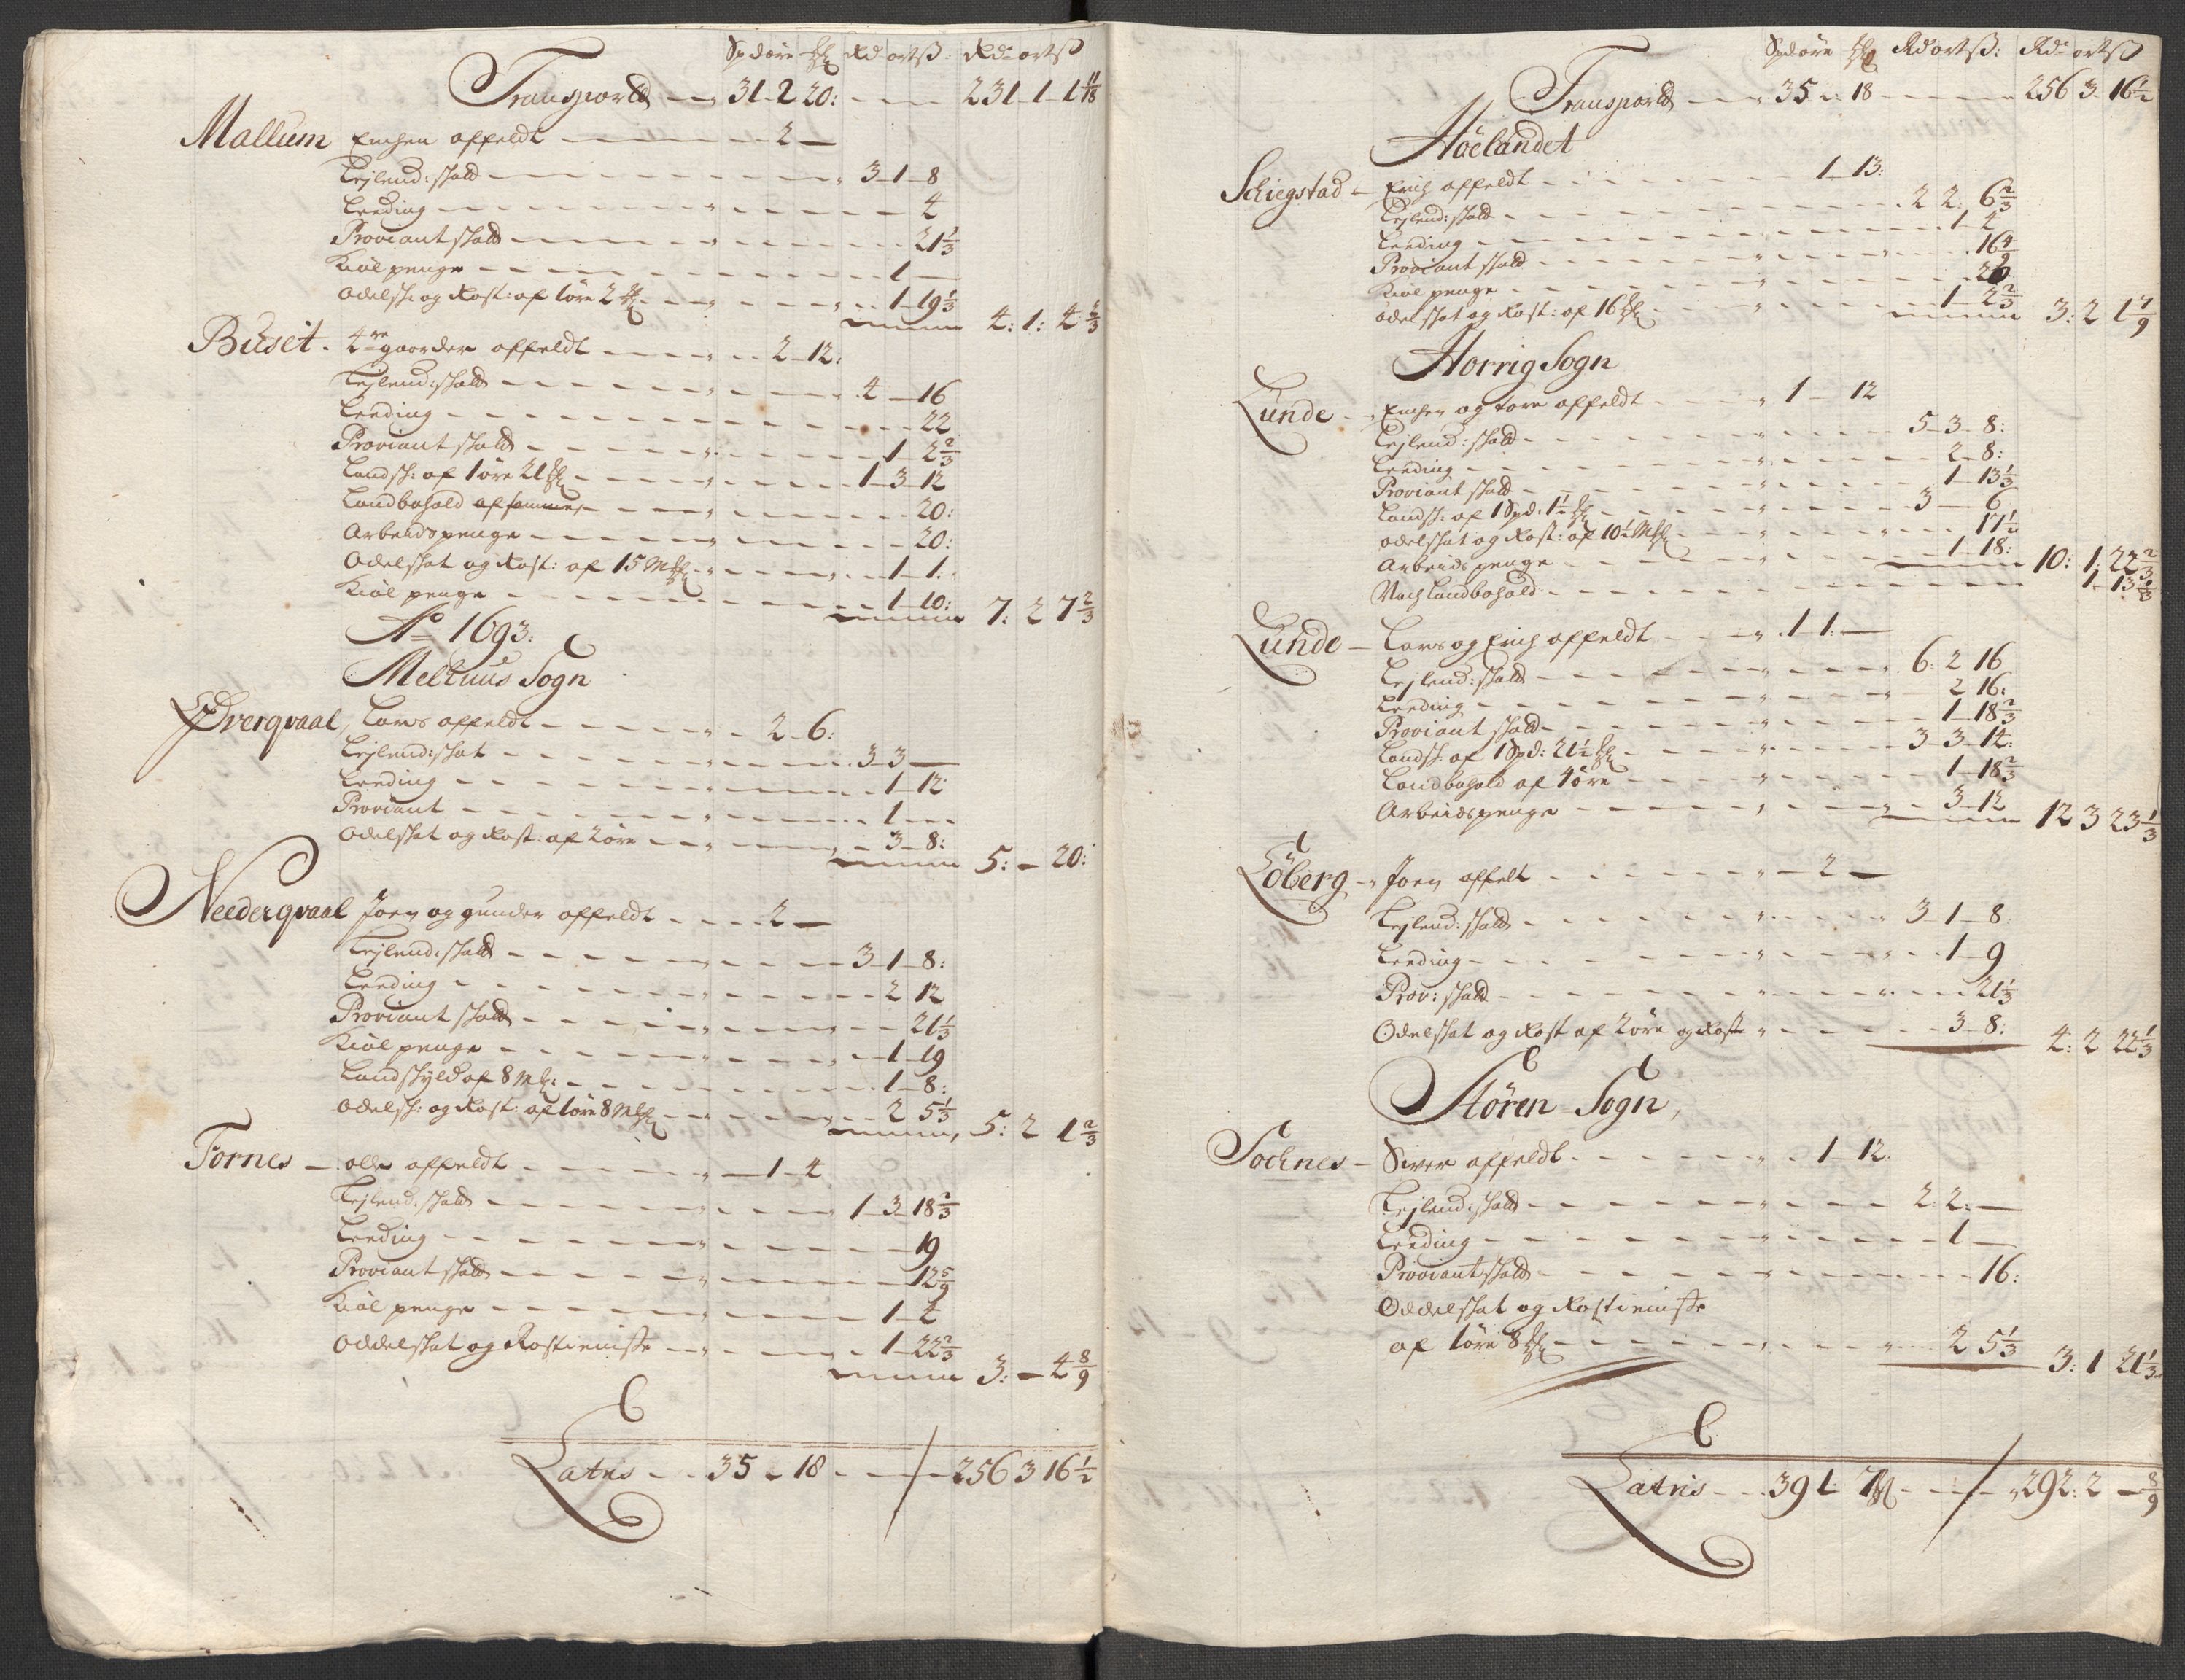 Spd øre mk Rd ort ß: Rdr ort ß
Transporterd 31 2 20: 231 1 1 11/18
Mallum Encken affeldt 2 —
Lejlend: skatt 3 1 8
Leeding 4
Proviant skatt 21 1/3
Kiøl penge 1 —
Odelsk: og Rost: af 1 øre 2 mk 1 19 1/3
4: 1: 4 2/3
Buset 4re gaarder affeldt 2 12:
Lejlend: skatt 4 — 16
Leeding 22
Proviant skatt 1 2 2/3
Landsk: af 1 øre 21 mk 1 3 12
Landbohold af samme 20:
Arbeidspenge 20:
Odelskat og Rost: af 15 Mk 1 1:
Kiøl penge 1 10: 7: 2 7 2/3
Ao 1693:
Melhuus Sogn
Øfverqvaal Lars affeldt 2 6:
Lejlend: skat 3 3 —
Leeding 1 12
Proviant 1 —
Odelskat og Rost: af 2 øre 3 8:
5: — 20:
Neederqvaal Joen og gunder affeldt 2 —
Lejlend: skatt 3 1 8:
Leeding 2 12
Proviant skatt 21 1/3
Kiøl penge 1 19
Landskyld af 8 Mk: 1 8:
Odelsk: og Rost: af 1 øre 8 Mk 2 5 1/3
5: 2 1 2/3
Fornes olle affeldt 1 4
Lejlend: skatt 1 3 18 2/3
Leeding 19
Proviant skatt 12 5/9
Kiøl penge 1 4
Oddelskat og Rostieniste 1 22 2/3
3: — 4 8/9
Latris 35 — 18 256 3 16 1/2
Spd øre mk Rd ort ß: Rdr ort ß
Transporterd 35 — 18 256 3 16 1/2
Høelandet
Schiegstad Erich affeldt 1 13:
Lejlend: skatt 2 2 6 2/3
Leeding 1 4
Proviant skatt 16 4/9
Kiøl penge 20
Odelskat og Rost: af 16 mk 1 2 2/3
3: 2 1 7/9
Horrig Sogn
Lunde Encken og Tore affeldt 1 — 12
Lejlend: skatt 5 3 8:
Leeding 2 8:
Proviant skatt 1 13 1/3
Landsk: af 1 Spd: 1 1/2 mk 3 — 6
Odelskat og Rost: af 10 1/2 Mk 17 1/2
Arbeids penge 1 18:
10: 1: 22 2/3
Noch landbohold 1 13 1/3
Lunde Lars og Erich affeldt 1 1: —
Lejlend: skatt 6: 2 16
Leeding 2 16:
Proviant skatt 1 18 2/3
Landsk: af 1 Spd: 21 1/2 mk 3 3 14:
Landbohold af 1 øre 1 18 2/3
Arbeids penge 3 12
12 3 23 1/3
Løberg Joen affelt 2 —
Lejlend: skatt 3 1 8
Leeding 1 9
Prov: skatt 21 1/3
Odelskat og Rost af 2 øre og Rost 3 8:
4: 2 22 1/3
Støren Sogn,
Sochnes Siver affeldt 1 12
Lejlend: skatt 2 2: —
Leeding 1 —
Proviant skatt 16:
Oddelskat og Rostieniste
af 1 øre 8 mk 2 5 1/3
3: 1 21 1/3
Latris 39 1: 7 mk 292: 2 — 8/9